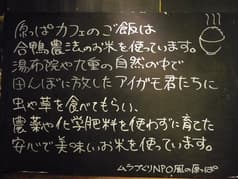 原っぱカフェのご飯は
合鴨農法のお米を使っています。
湯布院や九重の自然の中で
田んぼに放したアイガモ君たちに
虫や草を食べてもらい、
農薬や化学肥料を使わずに育てた
安心で美味しいお米を使っています。
ムラづくりNPO風の原っぱ